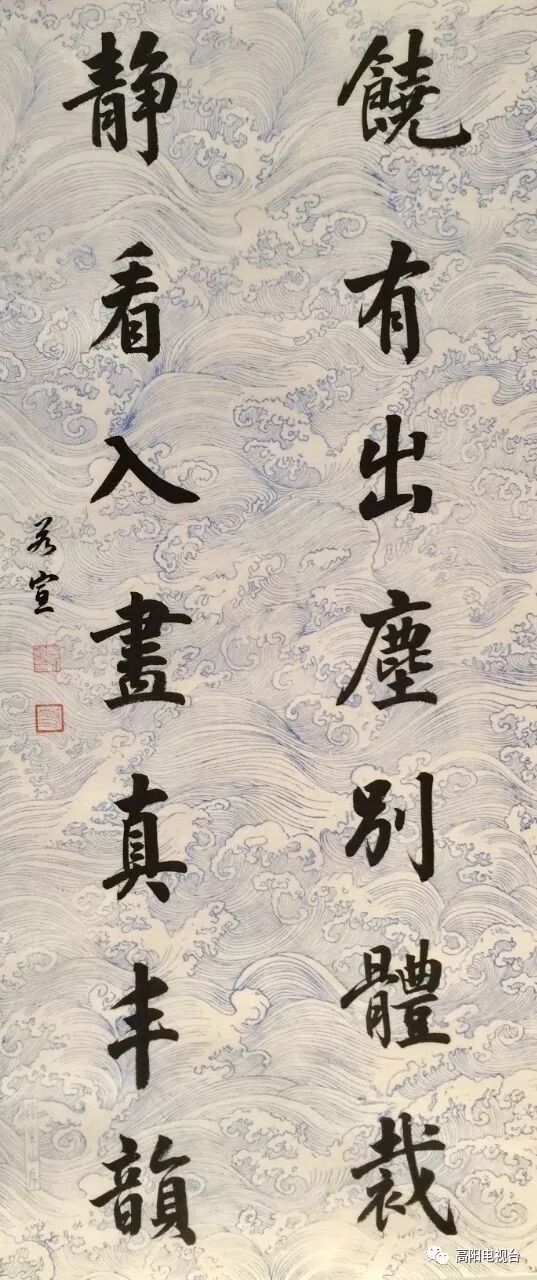 饒有出塵別體裁
靜看入畫真丰韻
若宣
高阳电视台